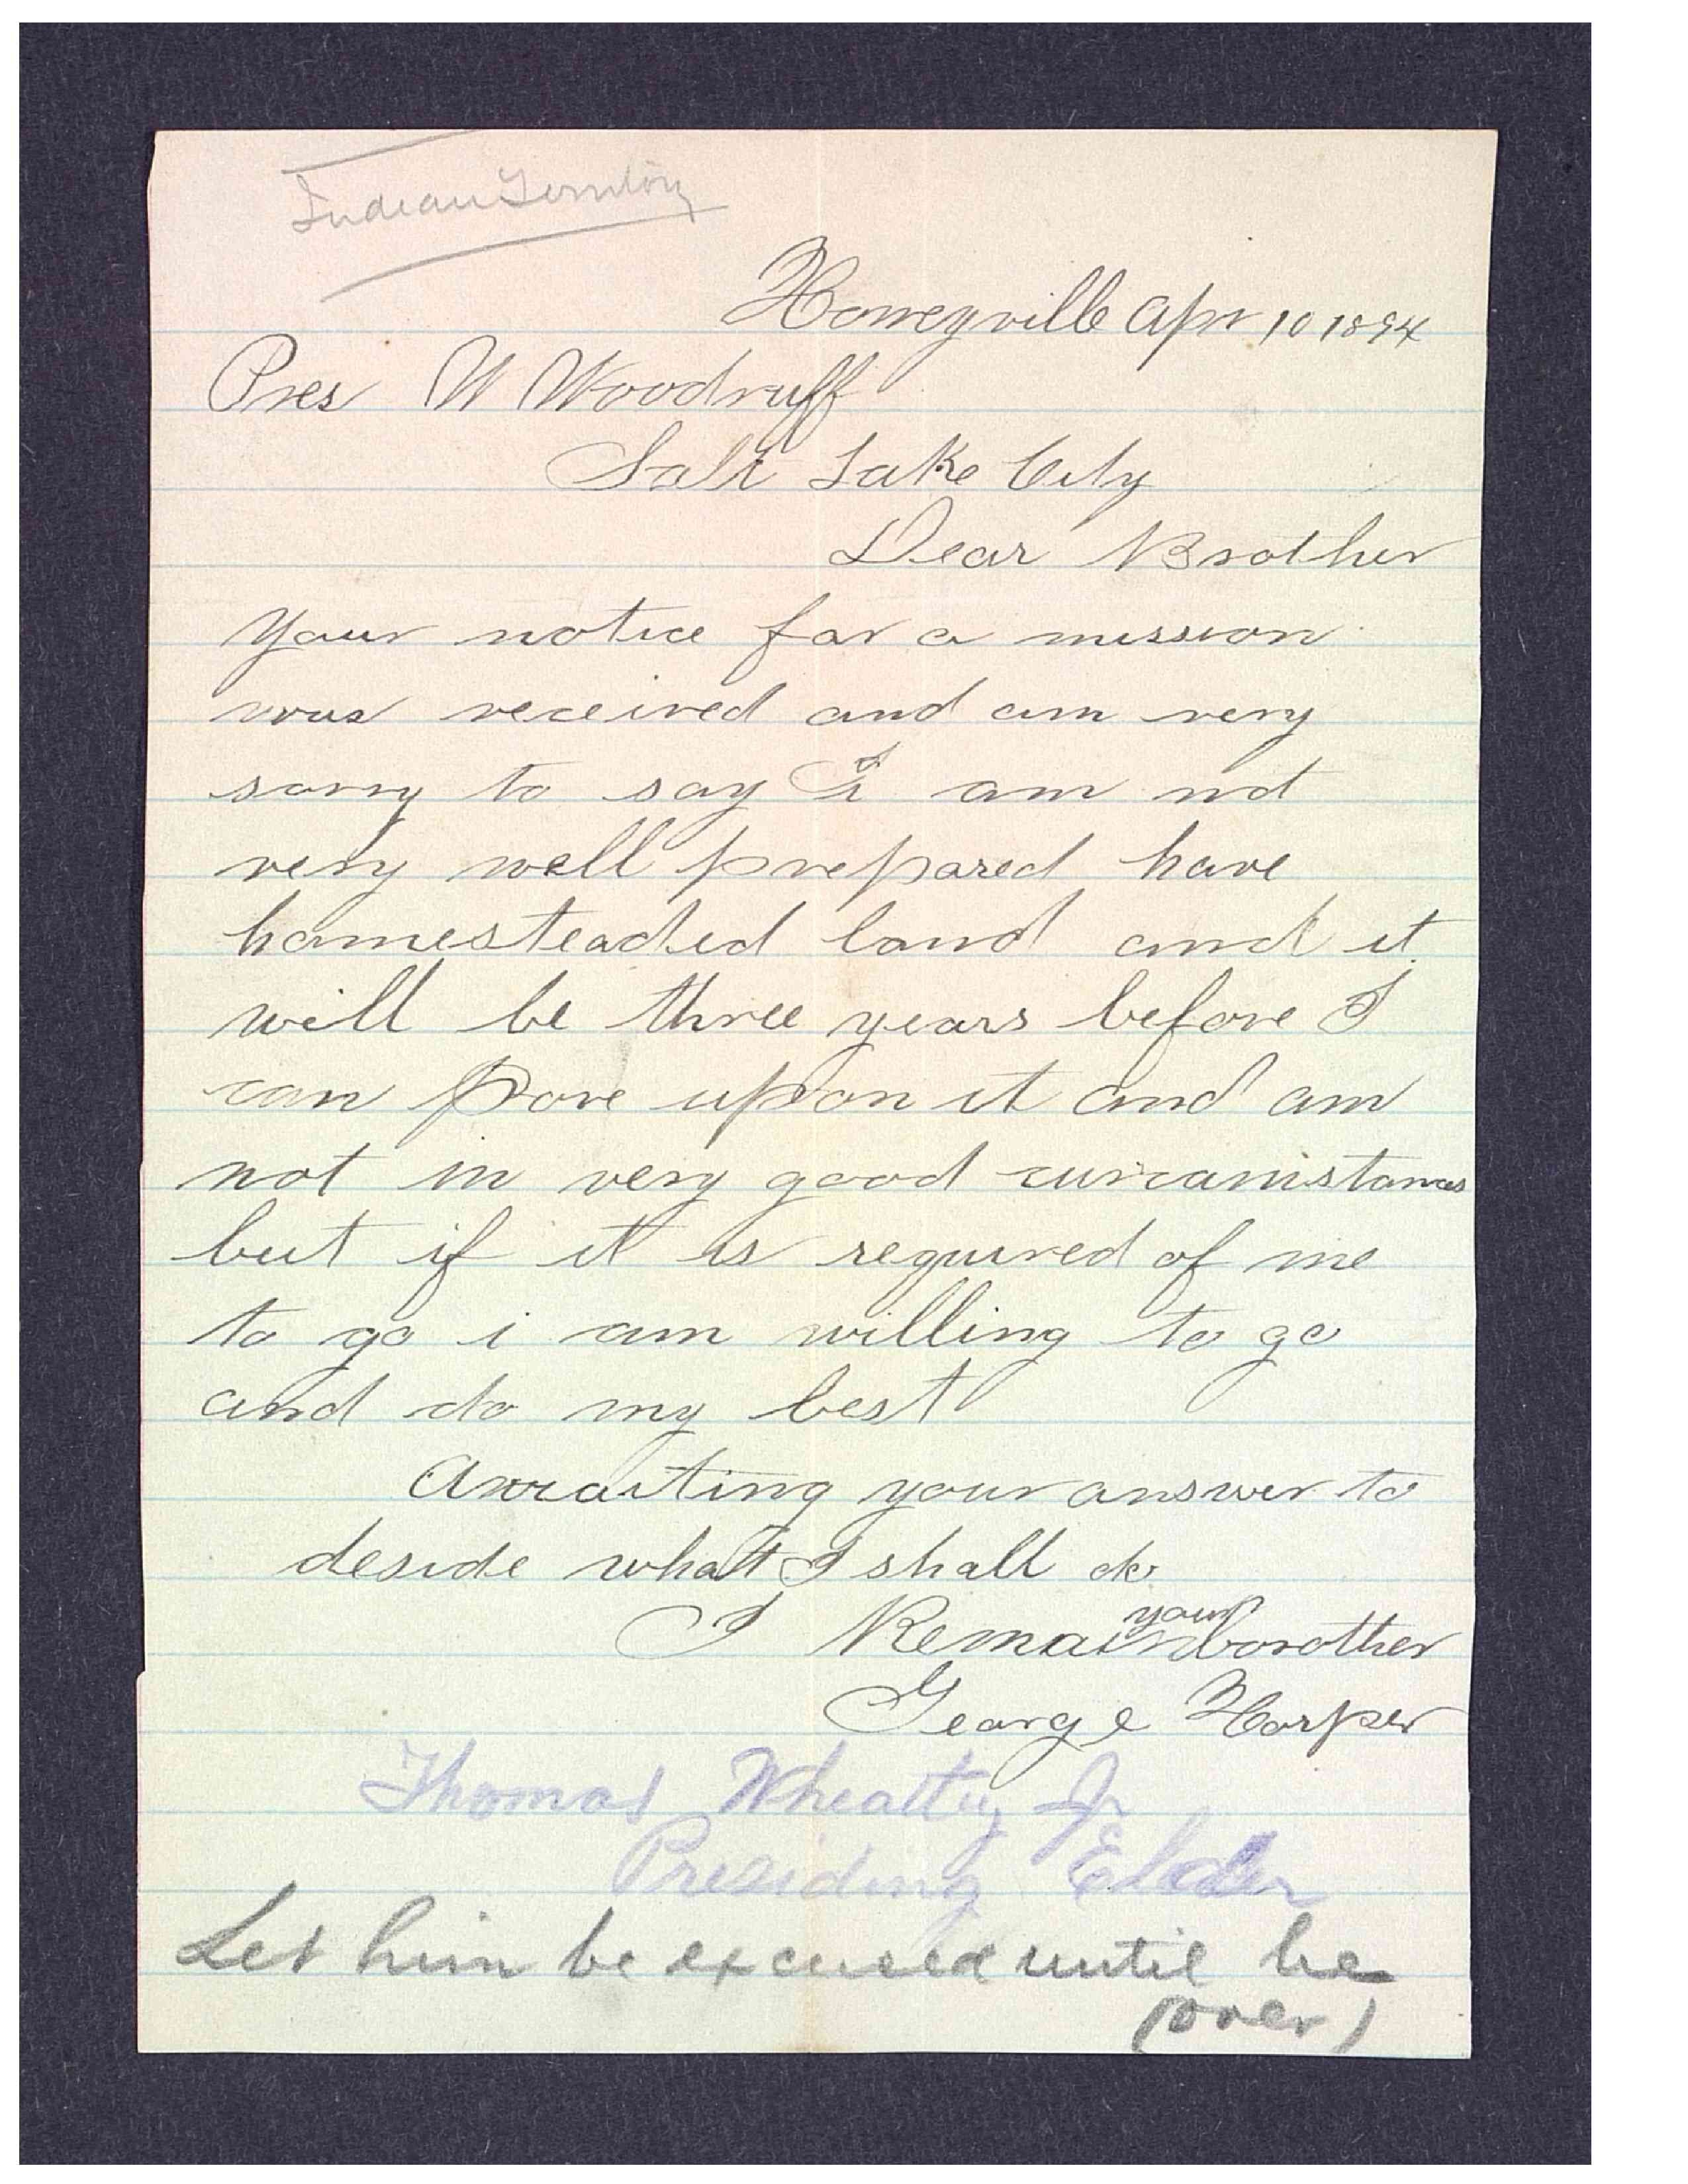 Indian Territory
Honeyville Apr 10 1894
Pres W Woodruff
Salt Lake City
Dear Brother
Your notice for a mission
was received and am very
sorry to say I am not
very well prepared have
homesteaded land and it
will be three years before I
can prove upon it and am
not in very good curcamistances
but if it is requred of me
to go i am willing to go
and do my best
Awaiting your answer to
deside what I shall do
your
I Remain borother
George Harper
Thomas Wheatley Jr
Presiding Elder
Let him be excused until he
(over)